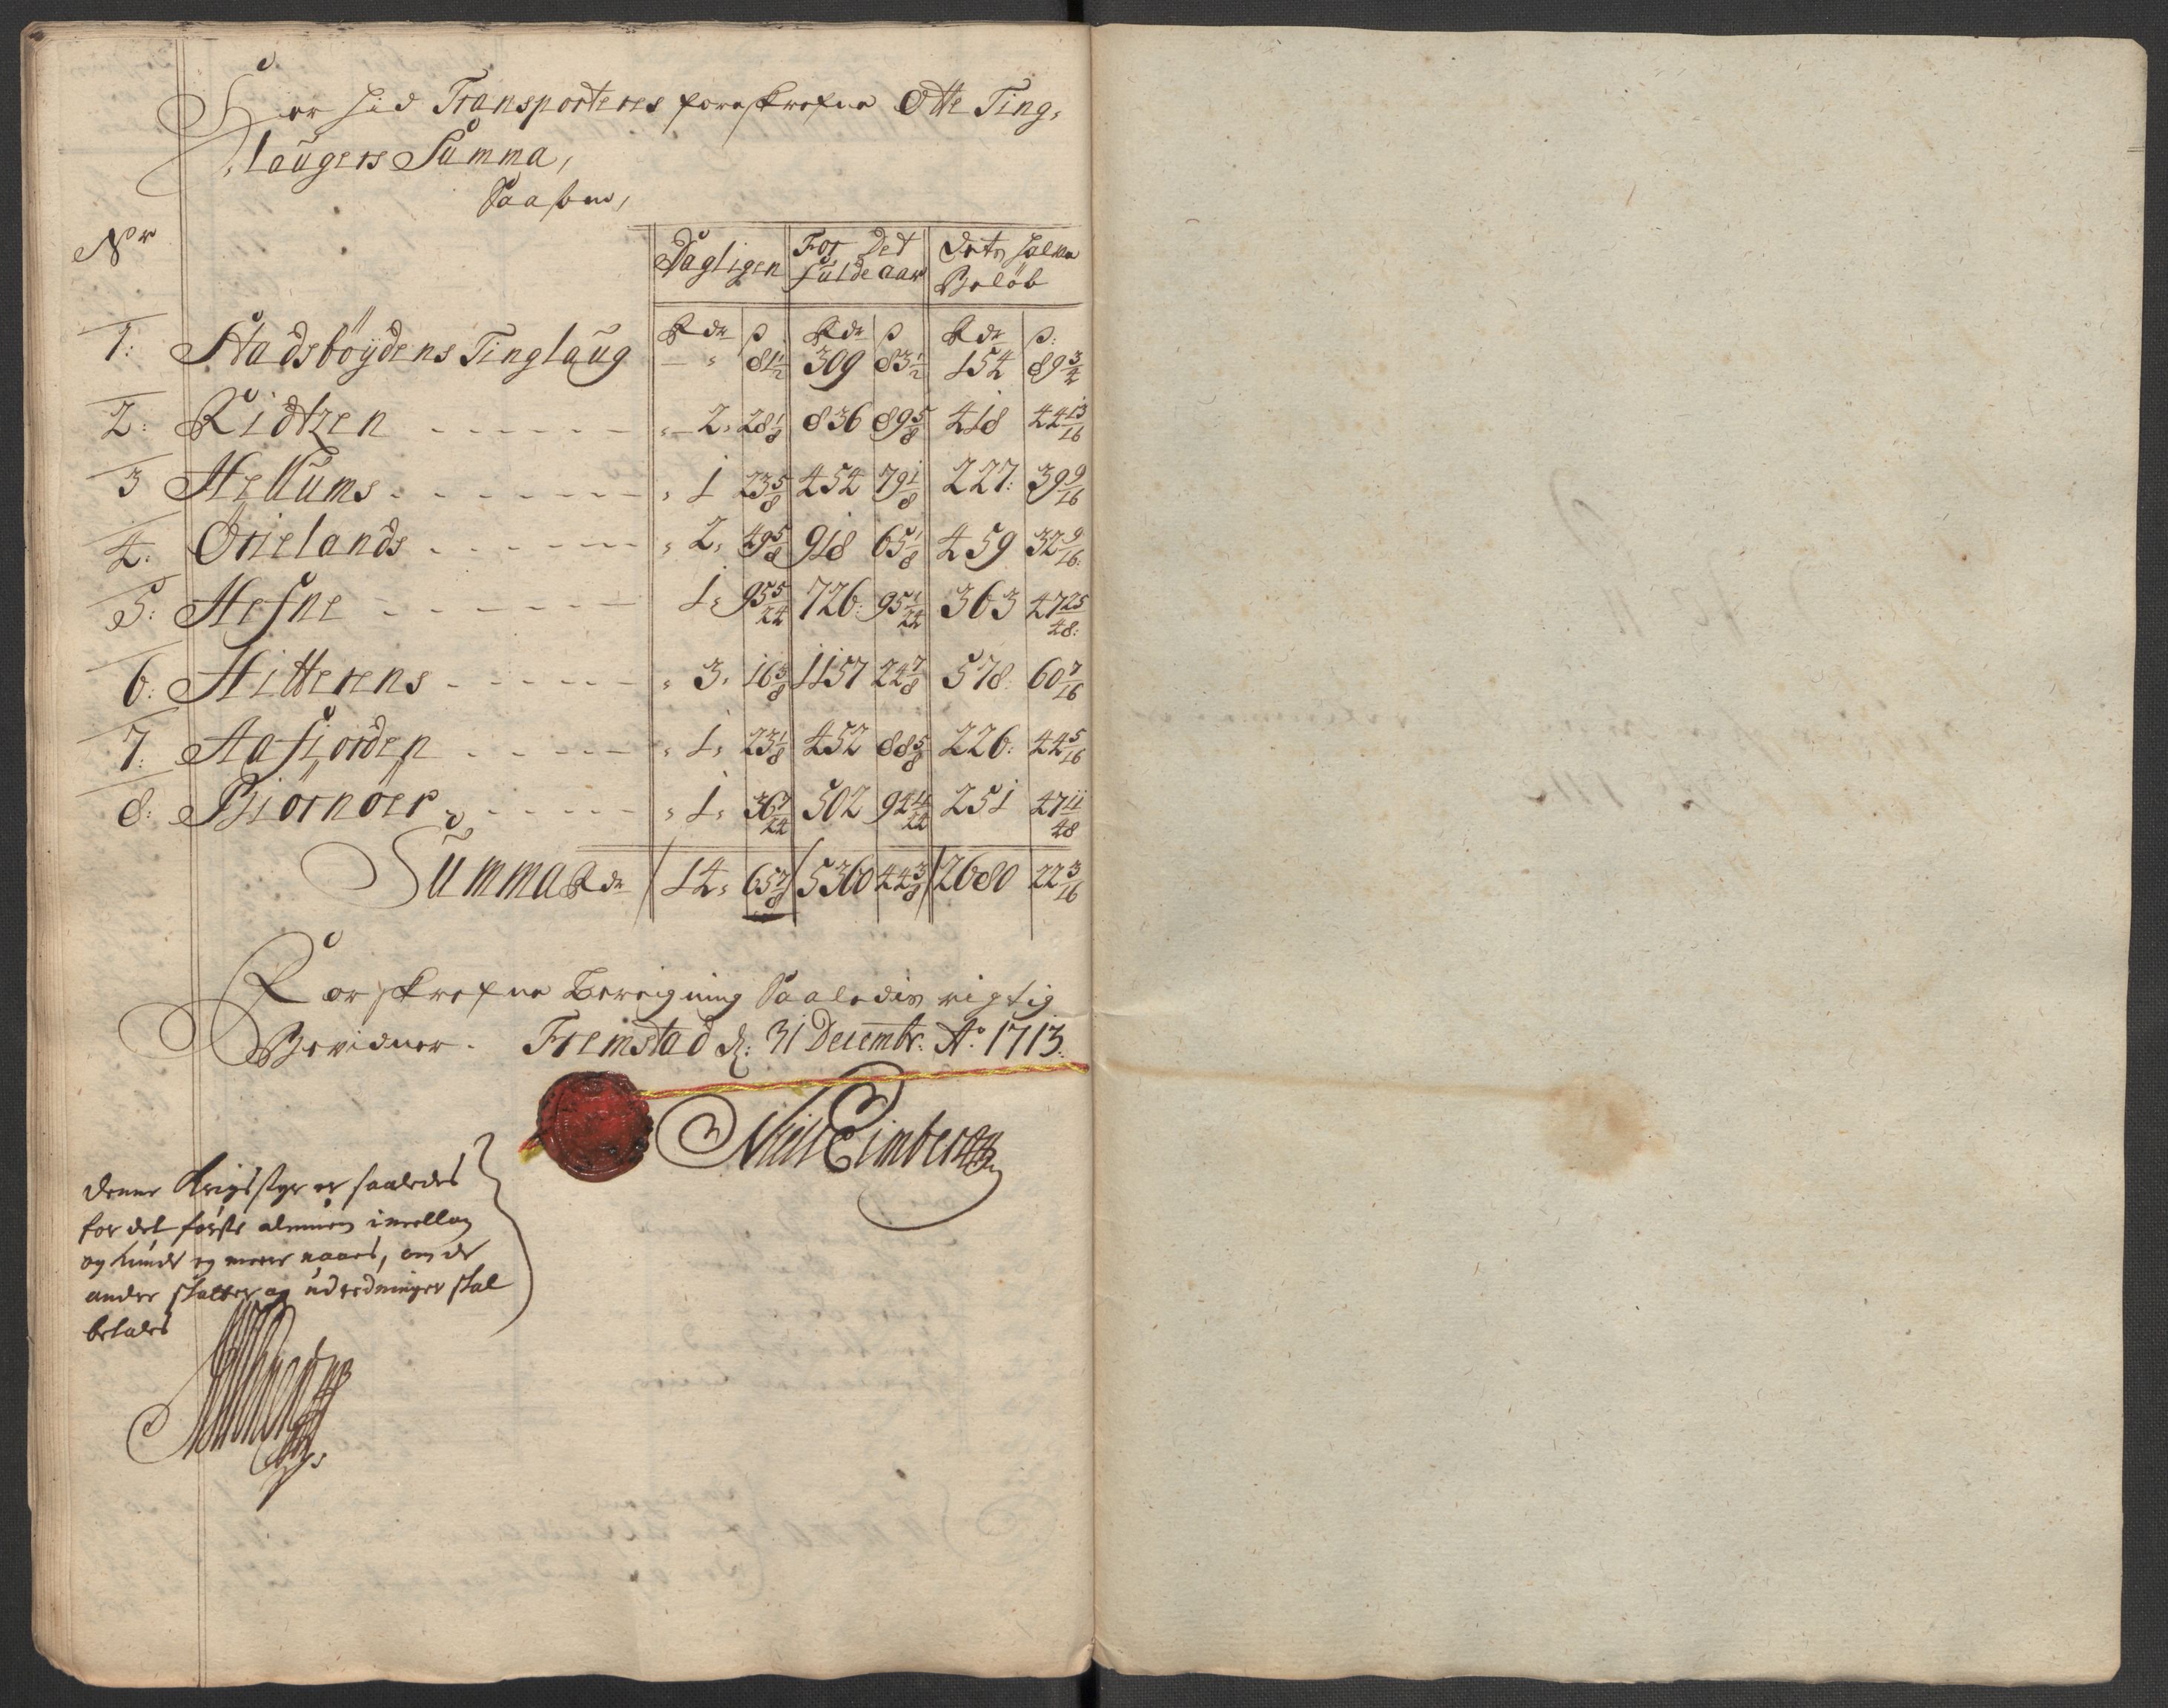 Her hid Transporteres foreskrefne Otte Ting-
laugers Summa,
Saasom,
Nr
Dagligen | For Det fulde aar | Dets halve Beløb
Rdr ß | Rdr ß | Rdr ß:
1: Stadsböÿdens Tinglaug — " 81 1/2 | 309 83 1/2 | 154 89 3/4
2: Ridtzen - - - - - - 2, 28 1/8 | 836 89 5/8 | 418 44 13/16
3 Hellums - - - - - - 1 23 5/8 | 454 79 1/8 | 227: 39 9/16
4: Örielands - - - - - - 2, 49 5/8 | 918 65 1/8 | 459 32 9/16
5: Hefne - - - - - - 1, 95 5/24 | 726: 95 1/24 | 363 47 25/48
6: Hitterens - - - - - 3, 16 3/8 | 1157 24 7/8 | 578 60 7/16
7: Aafiorden - - - - - 1, 23 1/8 | 452 88 5/8 | 226: 44 5/16
8: Biörnöer - - - - - 1, 36 7/24 | 502 94 11/24 | 251 47 11/48
Summa Rdr 14, 65 7/8 | 5360 44 3/8 | 2680 22 3/16
Forskrefne Beregning Saaledis rigtig
Bevidner. Fremstad d: 31 Decembr: Ao 1713
Niels Eimbersen
denne Krigsstyr er saaledes
for det første
og kunde ey mere naaes, om de
andre skatter og udredninger skal
betales